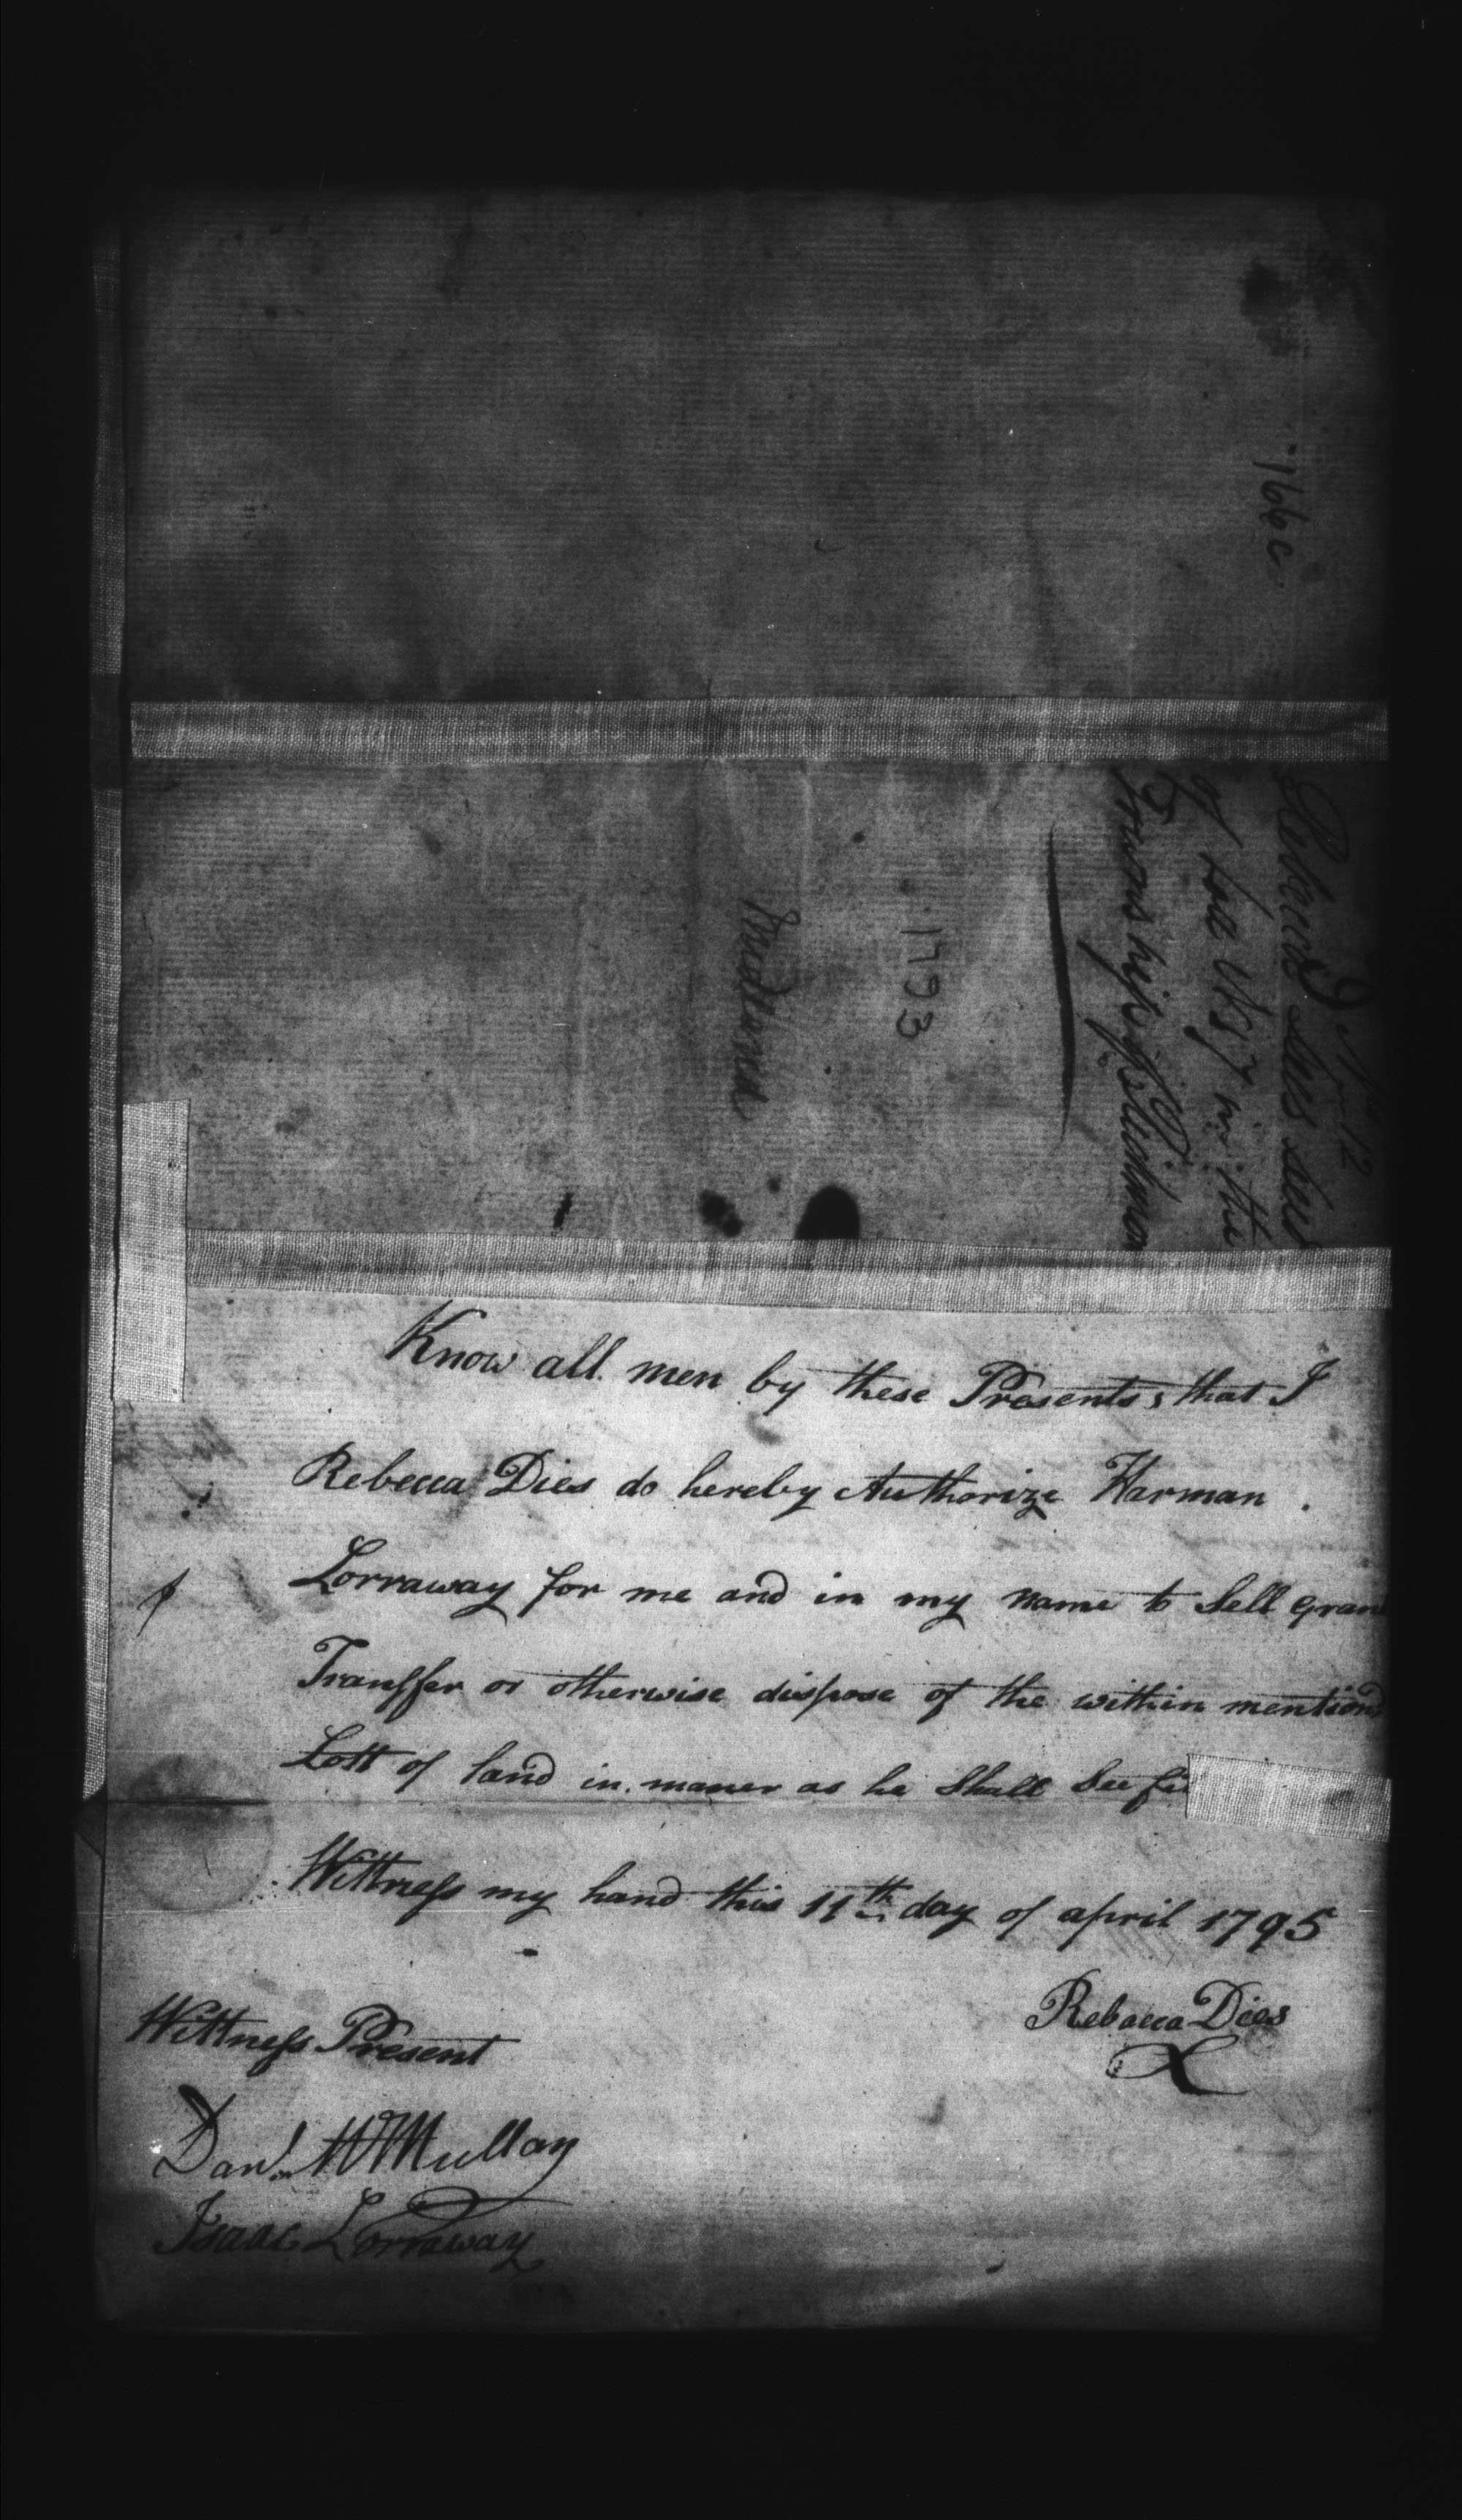 166c
No 12
Rebecca Dies deed
of Lott No 7 in the
Township of Richmon
1793
Midland
Know all men by these Presents, that I
Rebecca Dies do hereby Authorize Harman
Lorraway for me and in my name to Sell gran
Transfer or otherwise dispose of the within mentiond
Lott of land in maner as he Shall See fi
Wittness my hand this 11th day of april 1795
Rebecca Dies
X
Wittness Present
Danl. McMullay
Isaac Lorraway